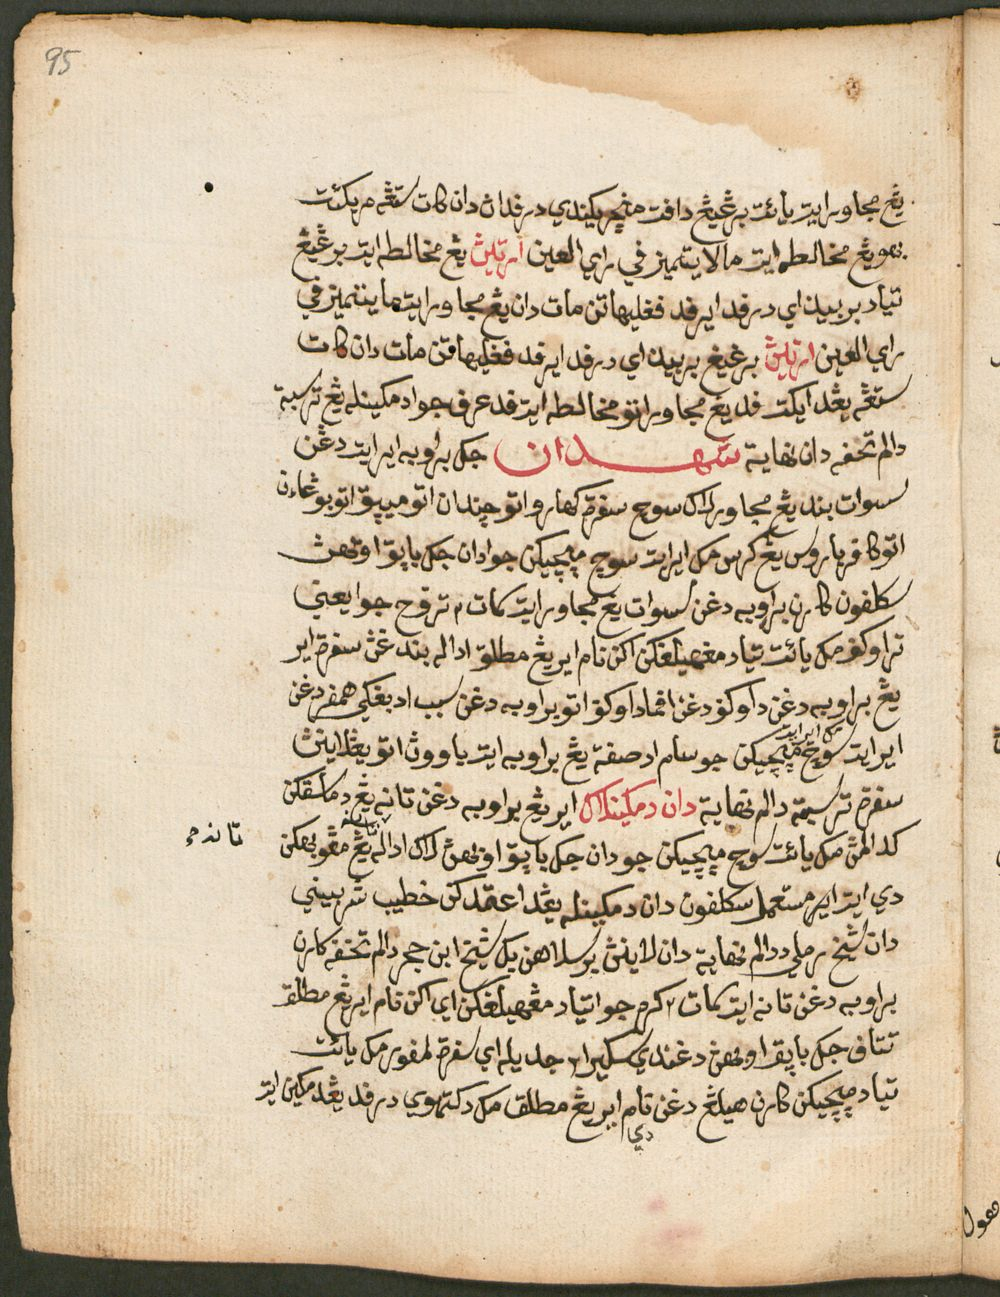 95
يڠ مجاور ايت يائت برڠيڠ دافت منچريكندي درفدان دان كات ستڠه مريكئت
بهو يڠ مخالطه ايت مالا يتميز في راي العين ارتيڽ يڠ مخالطه ايت برڠيڠ
تياد بربيدا اي درفد اير فد فڠليهاتن مات دان يڠ مجاور ايت ما يتميز في
راي العين ارتيڽ برڠيڠ بربيدا اي درفد اير فد فڠليهاتن مات دان كات
ستڠه يڠد ايكت فد يڠ مجاور اتو مخالطه ايت فد عرف جوا دمكينله يڠ ترسبت
دالم تحفه دان نهاية شهدان جك براوبه اير ايت دڠن
سسوات بند يڠ مجاور اكن سوچ سفرت كهارو اتو چندان اتو ميپق اتو بوڠاءن
اتو كافر باروس يڠ كرس مك اير ايت سوچ مپچيكن جوا دان جك باپق اوبهڽ
سكلفون كارن براوبه دڠن سسوات يڠ مجاور ايت كمات٢ تروح جوا يعني
تراوكفو مك يائت تياد مڠهيلڠكن اكن نام اير يڠ مطلق اداله بندڠڽ سفرت اير
يڠ براوبه دڠن داوكفو دڠن افماداوكفو اتو براوبه دڠن سبب اد بڠكي همفر دڠن
اير ايت سوچ مپچيكن جو سام اد صفة يڠ براوبه ايت باووڽ اتو يڠلاينڽ
مك اير ايت
سفرت ترسبة دالم نهاية دان دمكينلاݢ اير يڠ براوبه دڠن تانه يڠ دماسقكن
كدالمڽ مك يائت سوچ مپچيكن جو دان جك باپق اوبهڽ كران اداله يڠ مڠوبهكن
تانه
تانه
دي ايت اير مستعمل سكلفون دان دمكينله يڠد اعتمدكن خطيب شربيني
دان شيخ رملي ددالم نهاية دان لاينڽ برسلاهن يك شيخ ابن حجر دالم تحفه كارن
براوبه دڠن تانه ايت كمات٢ كرم جوا تياد مڠهيلڠكن اي اكن نام اير يڠ مطلق
تتاف جك باپق اوبهن دڠندي سكيرا٢ جديله اي سفرت لمفور مك يائت
تياد مپچيكن كارن هيلڠ دڠن نام اير يڠ مطلق مك دكتهوي درفد يڠد مكين ايت
دي